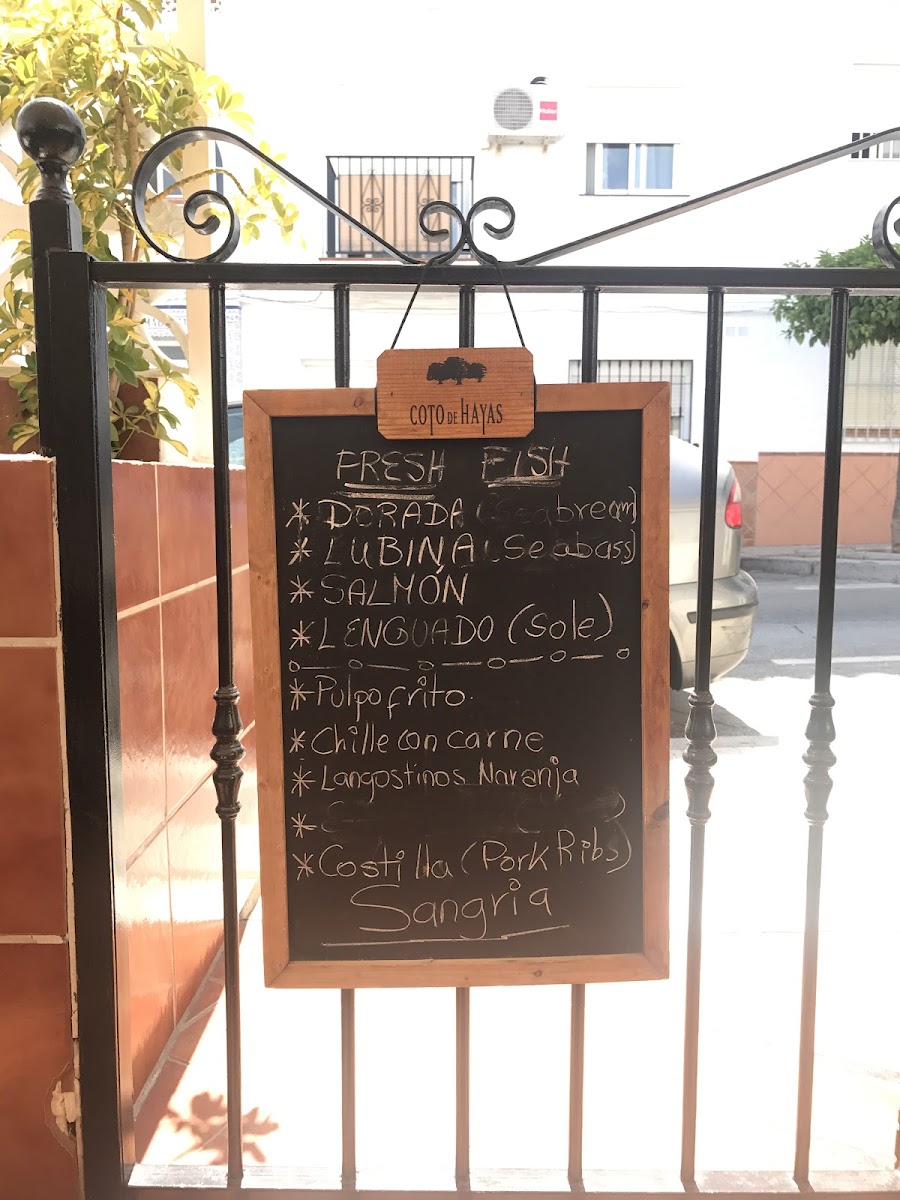 COTO DE HAYAS
FRESH FISH
* DORADA (Seabream)
* LUBINA (Seabass)
* SALMÓN
* LENGUADO (Sole)
* Pulpo frito.
* Chille con carne
* Langostinos Naranja
*
* Costilla (Pork Ribs)
Sangria